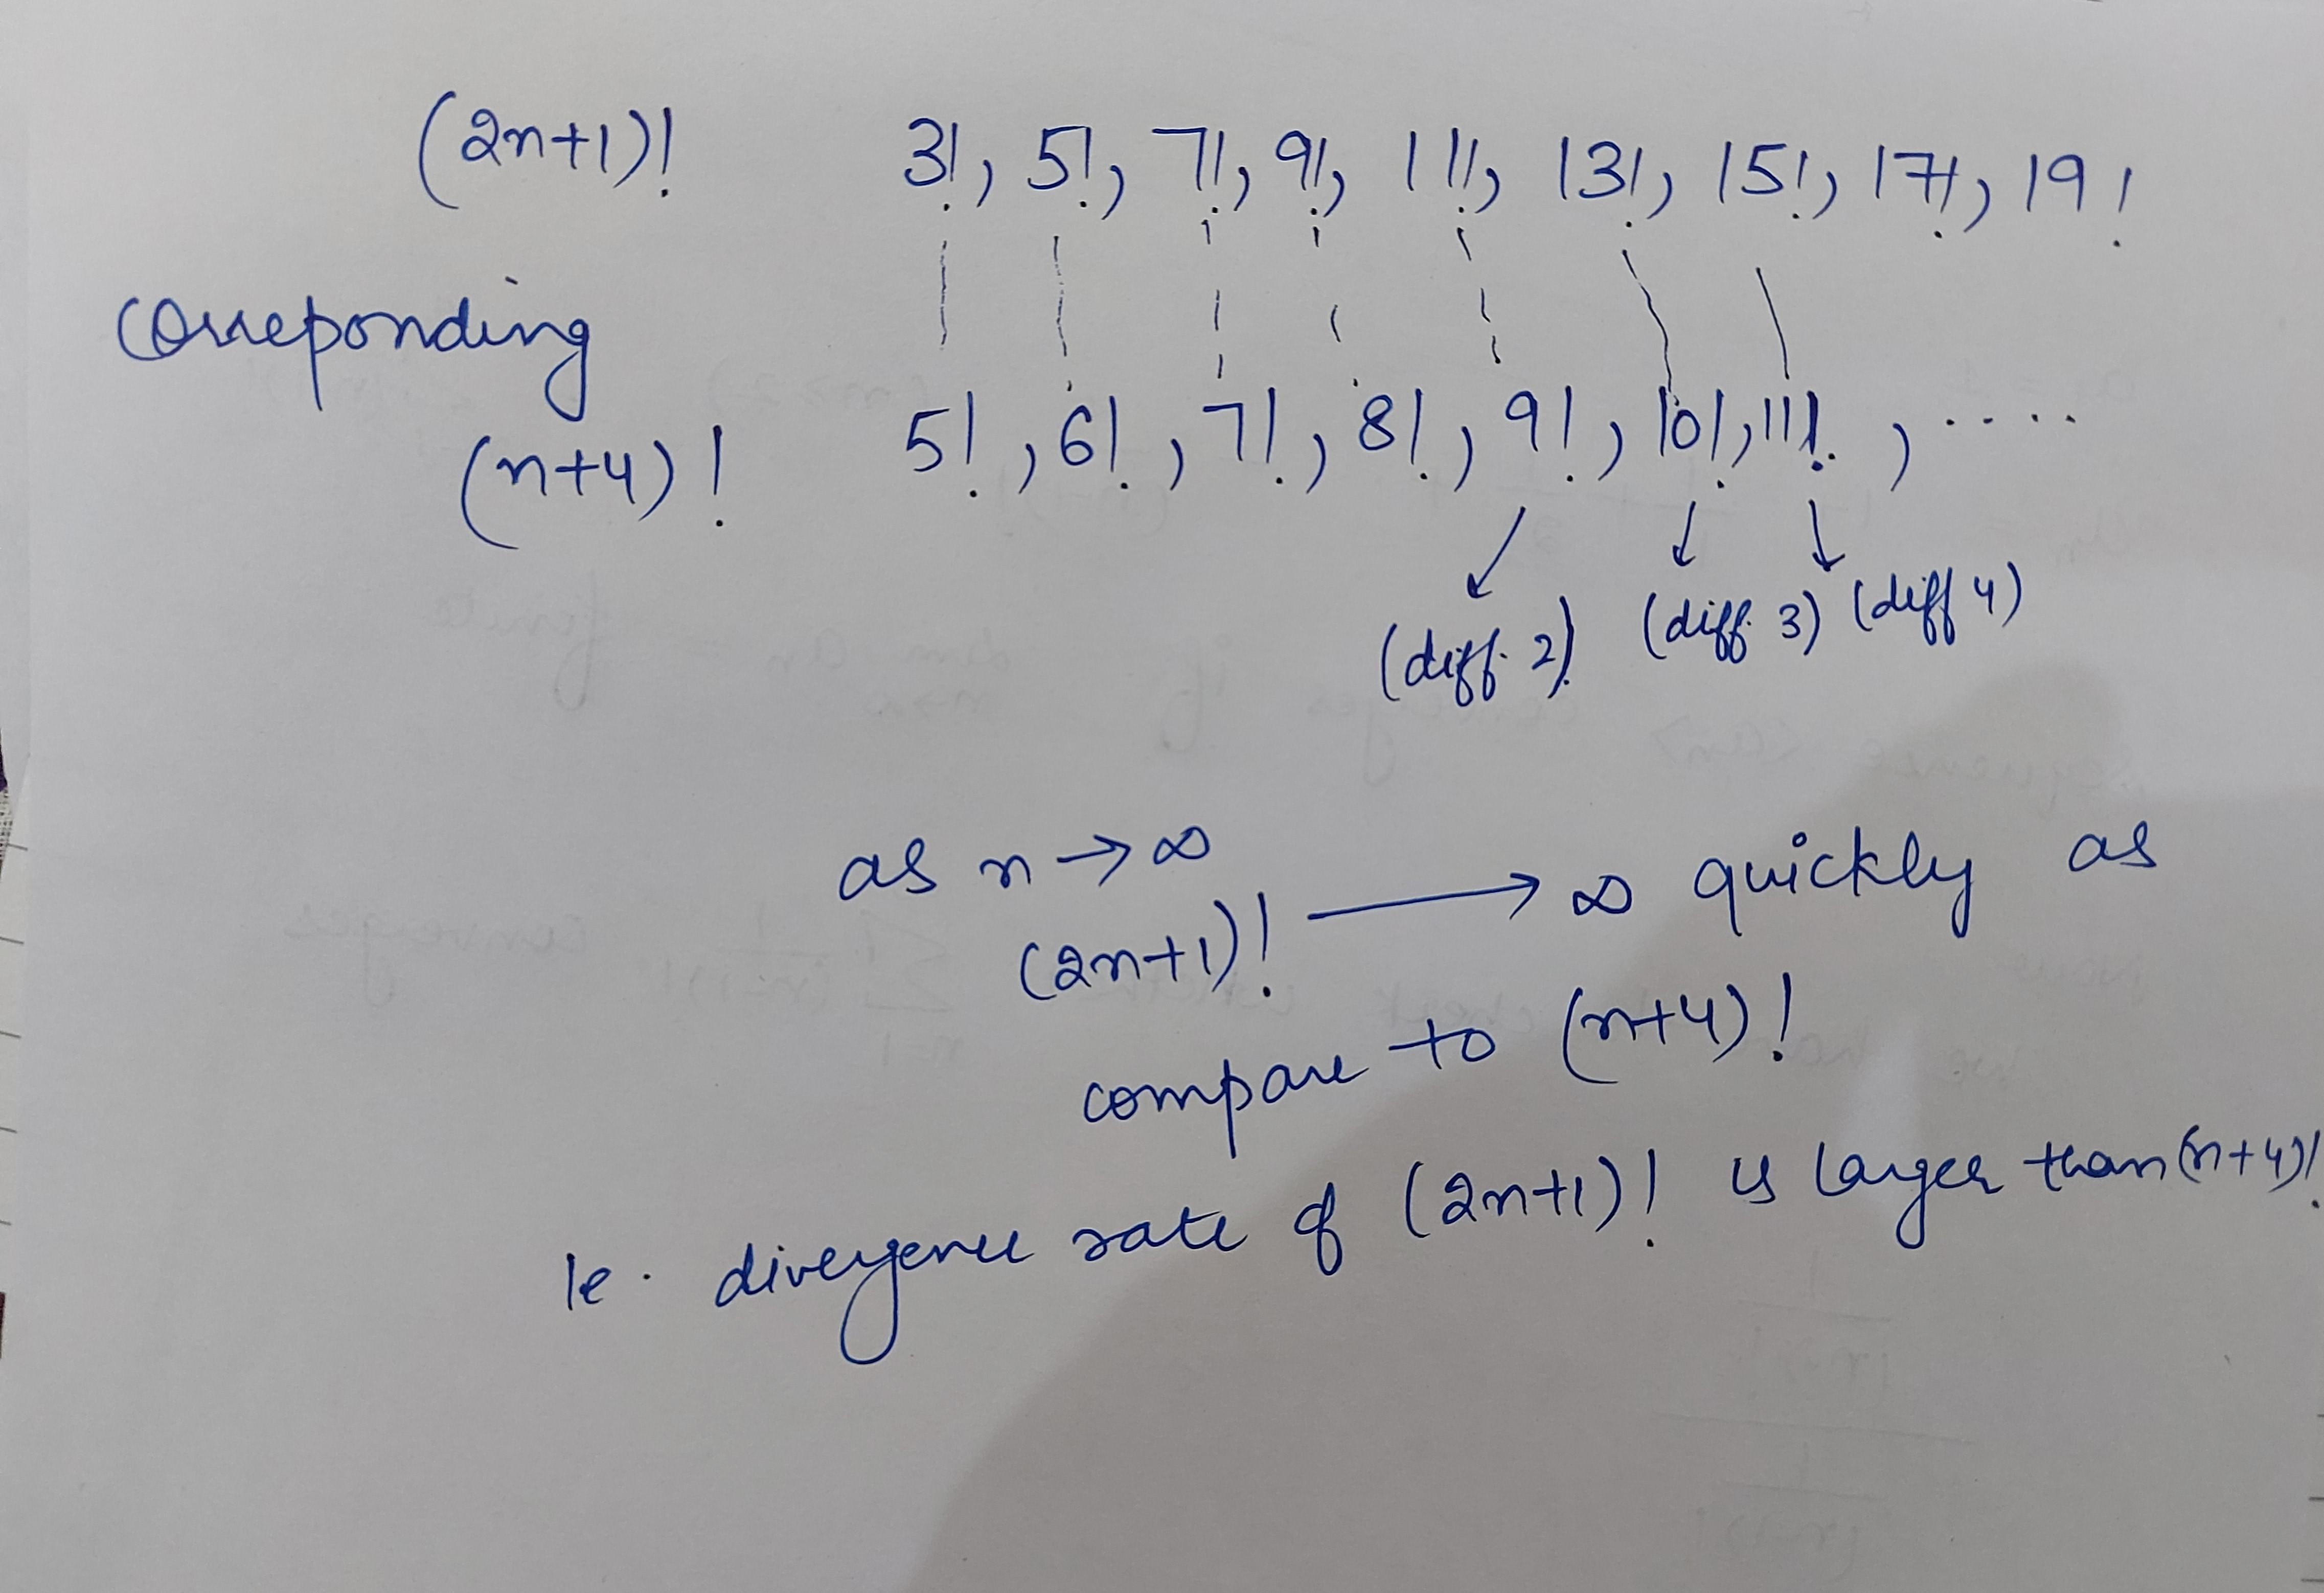 (2n+1)! 3!, 5!, 7!, 9!, 11!, 13!, 15!, 17!, 19!
correponding
(n+4)! 5!, 6!, 7!, 8!, 9!, 10!, 11!, .....
(diff. 2) (diff. 3) (diff 4)
as n → ∞
(2n+1)! → ∞ quickly as
compare to (n+4)!
ie. divergence rate of (2n+1)! is larger than (n+4)!